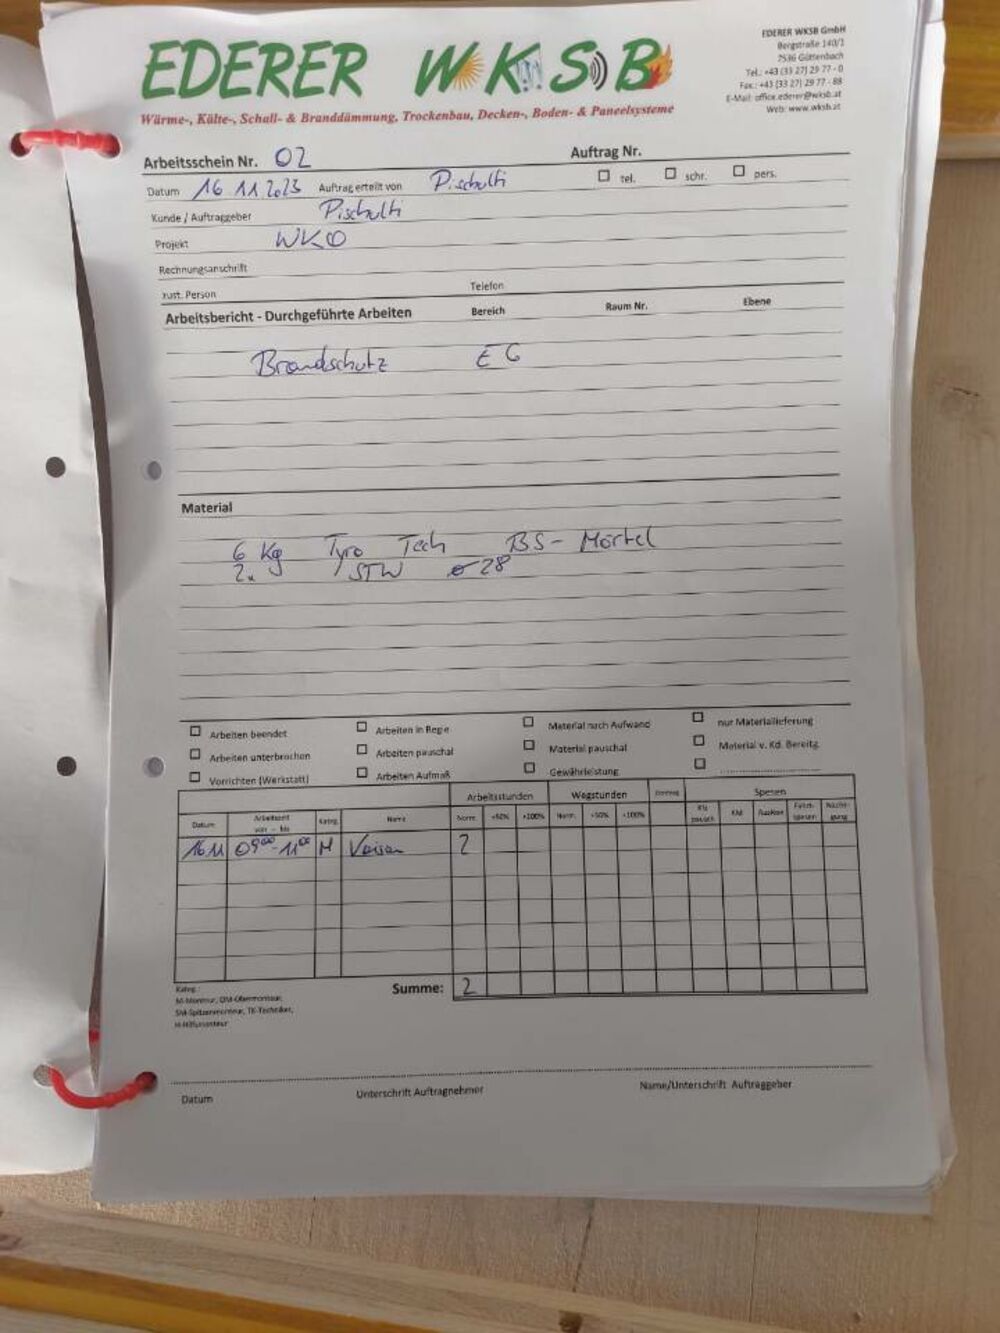 EDERER WKSB
Wärme-, Kälte-, Schall- & Branddämmung, Trockenbau, Decken-, Boden- & Paneelsysteme
EDERER WKSB GmbH
Bergstraße 140/1
7536 Güttenbach
Tel.: +43 (33 27) 29 77 - 0
Fax.: +43 (33 27) 29 77 - 88
E-Mail: office.ederer@wksb.at
Web: www.wksb.at
Arbeitsschein Nr. 02 Auftrag Nr.
Datum 16 11 2023 Auftrag erteilt von Pischulti ☐ tel. ☐ schr. ☐ pers.
Kunde / Auftraggeber Pischulti
Projekt WKO
Rechnungsanschrift
zust. Person Telefon
Arbeitsbericht - Durchgeführte Arbeiten Bereich Raum Nr. Ebene
Brandschutz EG
Material
6 Kg Tyro Tech BS- Mörtel
2x STW ø 28
☐ Arbeiten beendet ☐ Arbeiten in Regie ☐ Material nach Aufwand ☐ nur Materiallieferung
☐ Arbeiten unterbrochen ☐ Arbeiten pauschal ☐ Material pauschal ☐ Material v. Kd. Bereitg.
☐ Vorrichten (Werkstatt) ☐ Arbeiten Aufmaß ☐ Gewährleistung ☐
Arbeitsstunden Wegstunden Spesen
Datum Arbeitszeit von - bis Kateg. Name Norm. +50% +100% Norm. +50% +100% KM
16 11 09 00 - 11 00 M 2
Summe: 2
Kateg.:
M-Monteur, OM-Obermonteur,
SM-Spitzenmonteur, TK-Techniker,
H-Hilfsmonteur
Datum Unterschrift Auftragnehmer Name/Unterschrift Auftraggeber